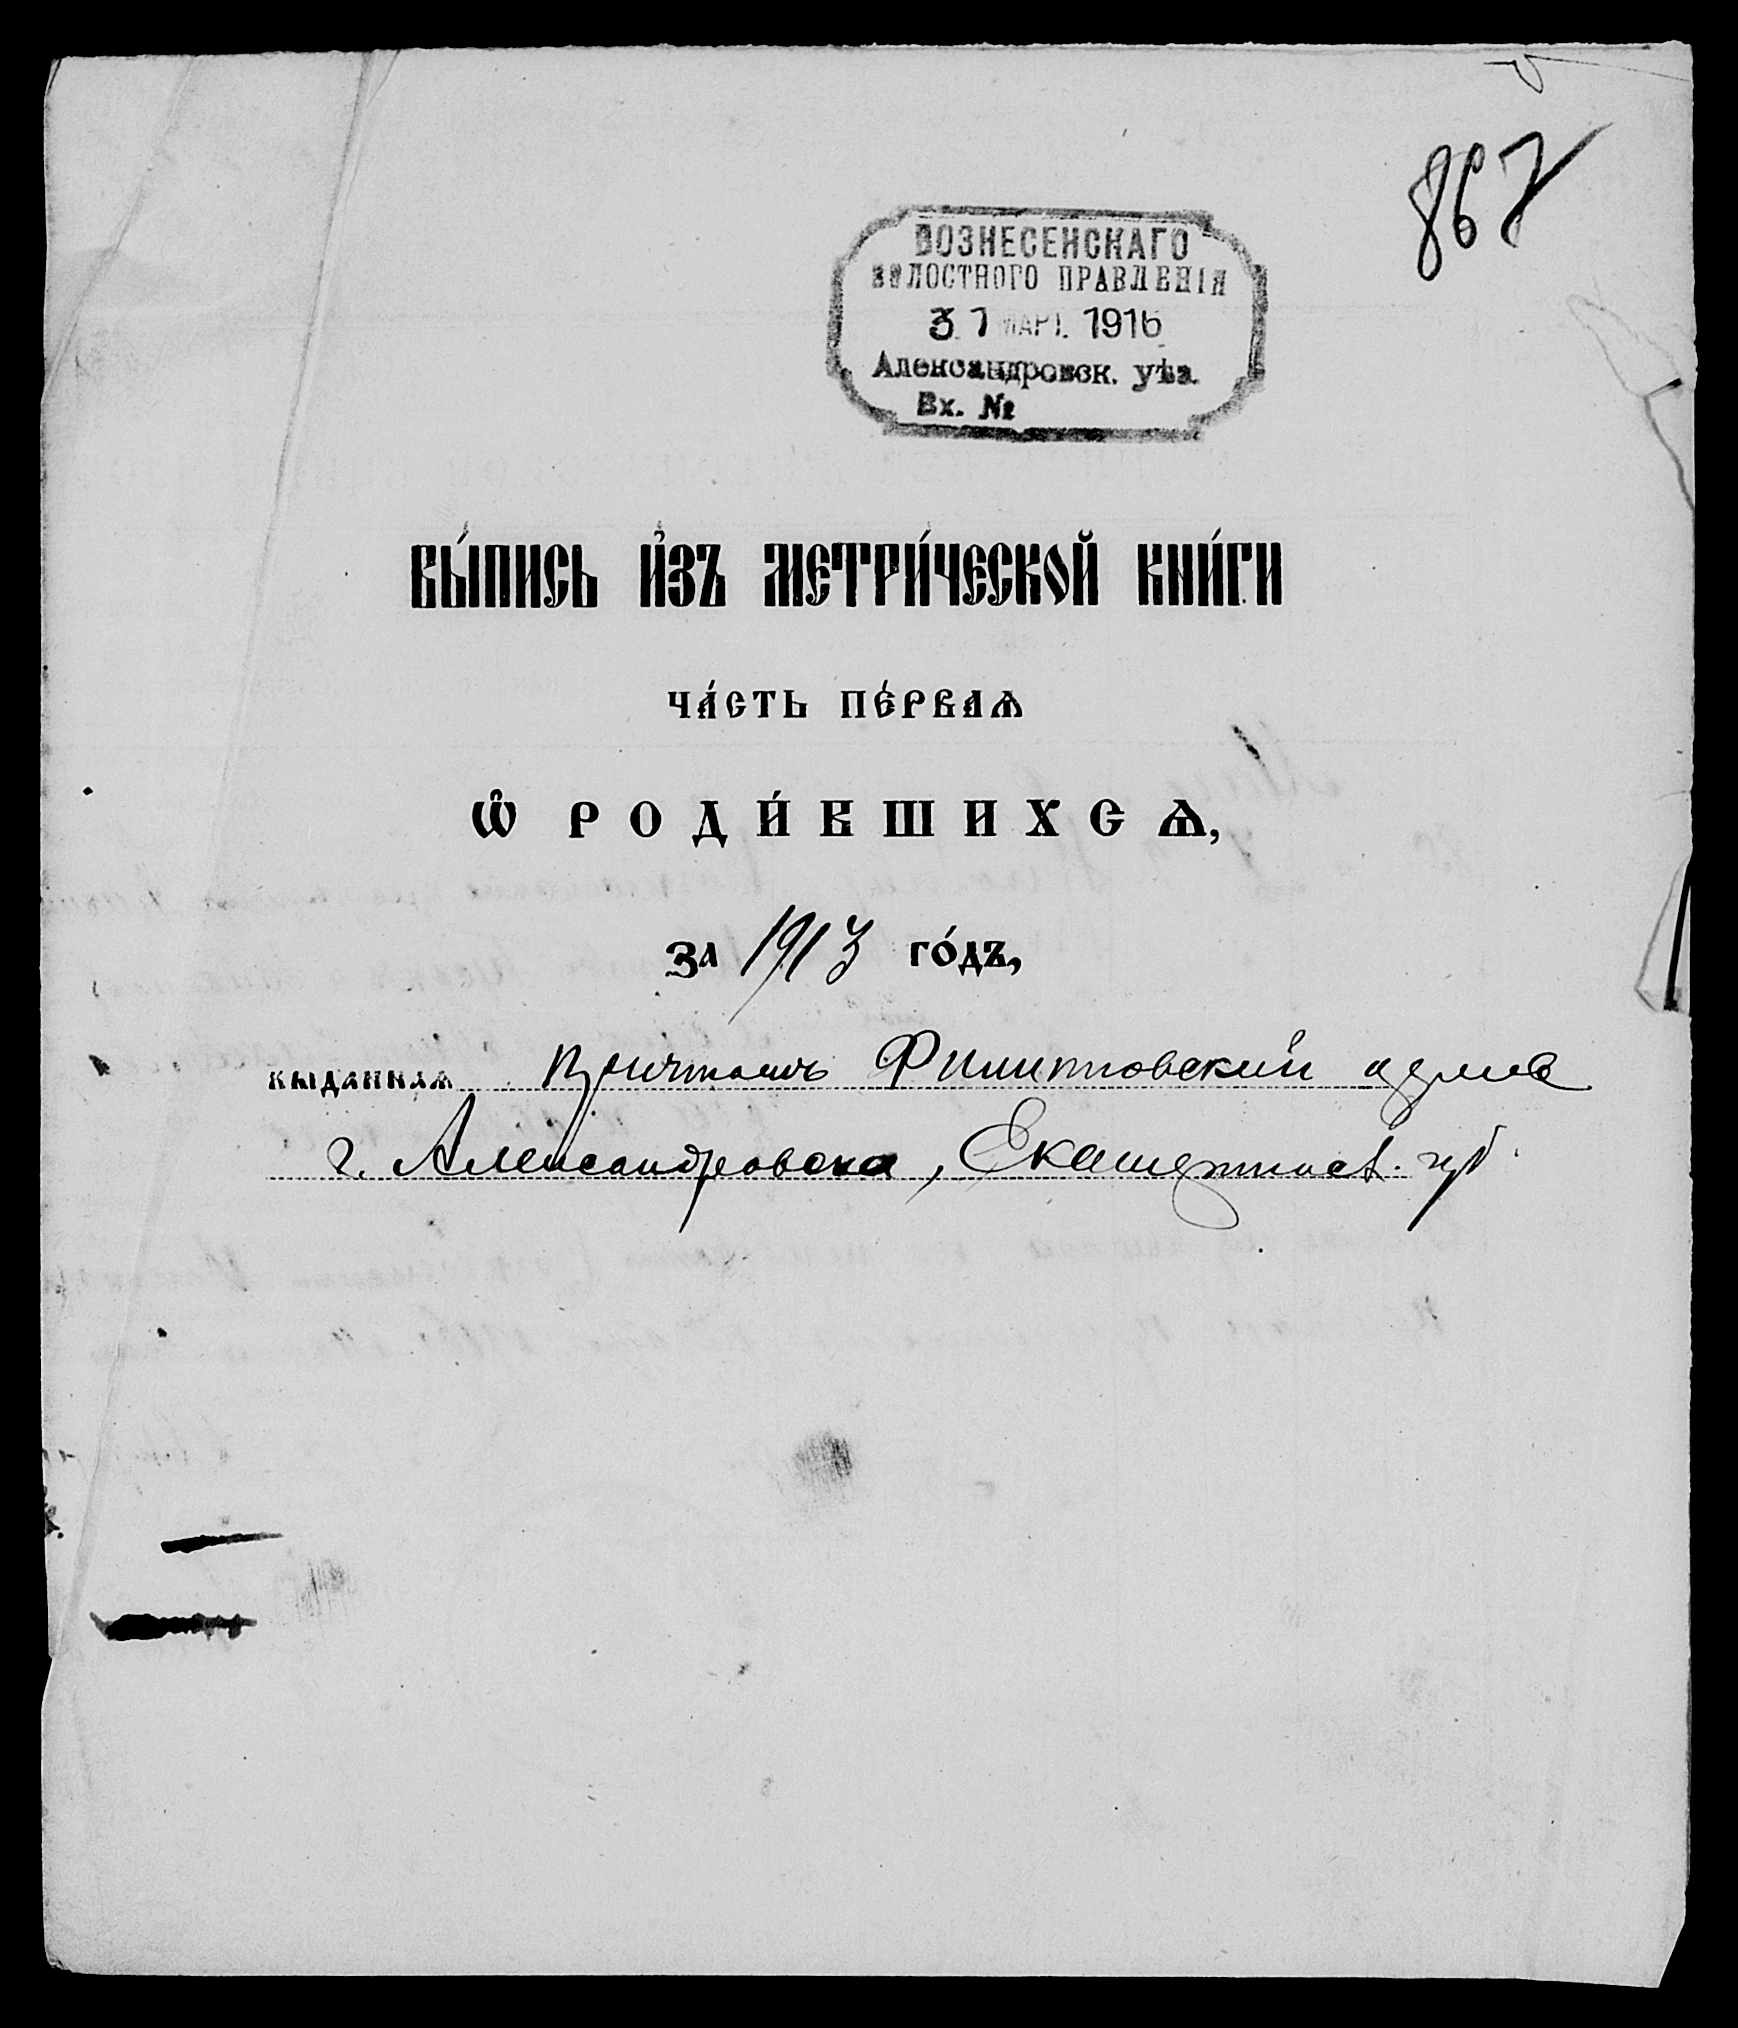 867
ВОЗНЕСЕНСКАГО
ВОЛОСТНОГО ПРАВЛЕНІЯ
31 МАРТ. 1916
Александровск. уѣз.
Вх. №
ВЫ́ПИСЬ И҆ЗЪ МЕТРИ́ЧЕСКОЙ КНИ́ГИ
ЧА́СТЬ ПЕ́РВАѦ
Ѽ РОДИ́ВШИХСѦ,
за 1913 го́дъ,
выданная причтомъ Филипповской церкв
г. Александровска, Екатериносл. губ.